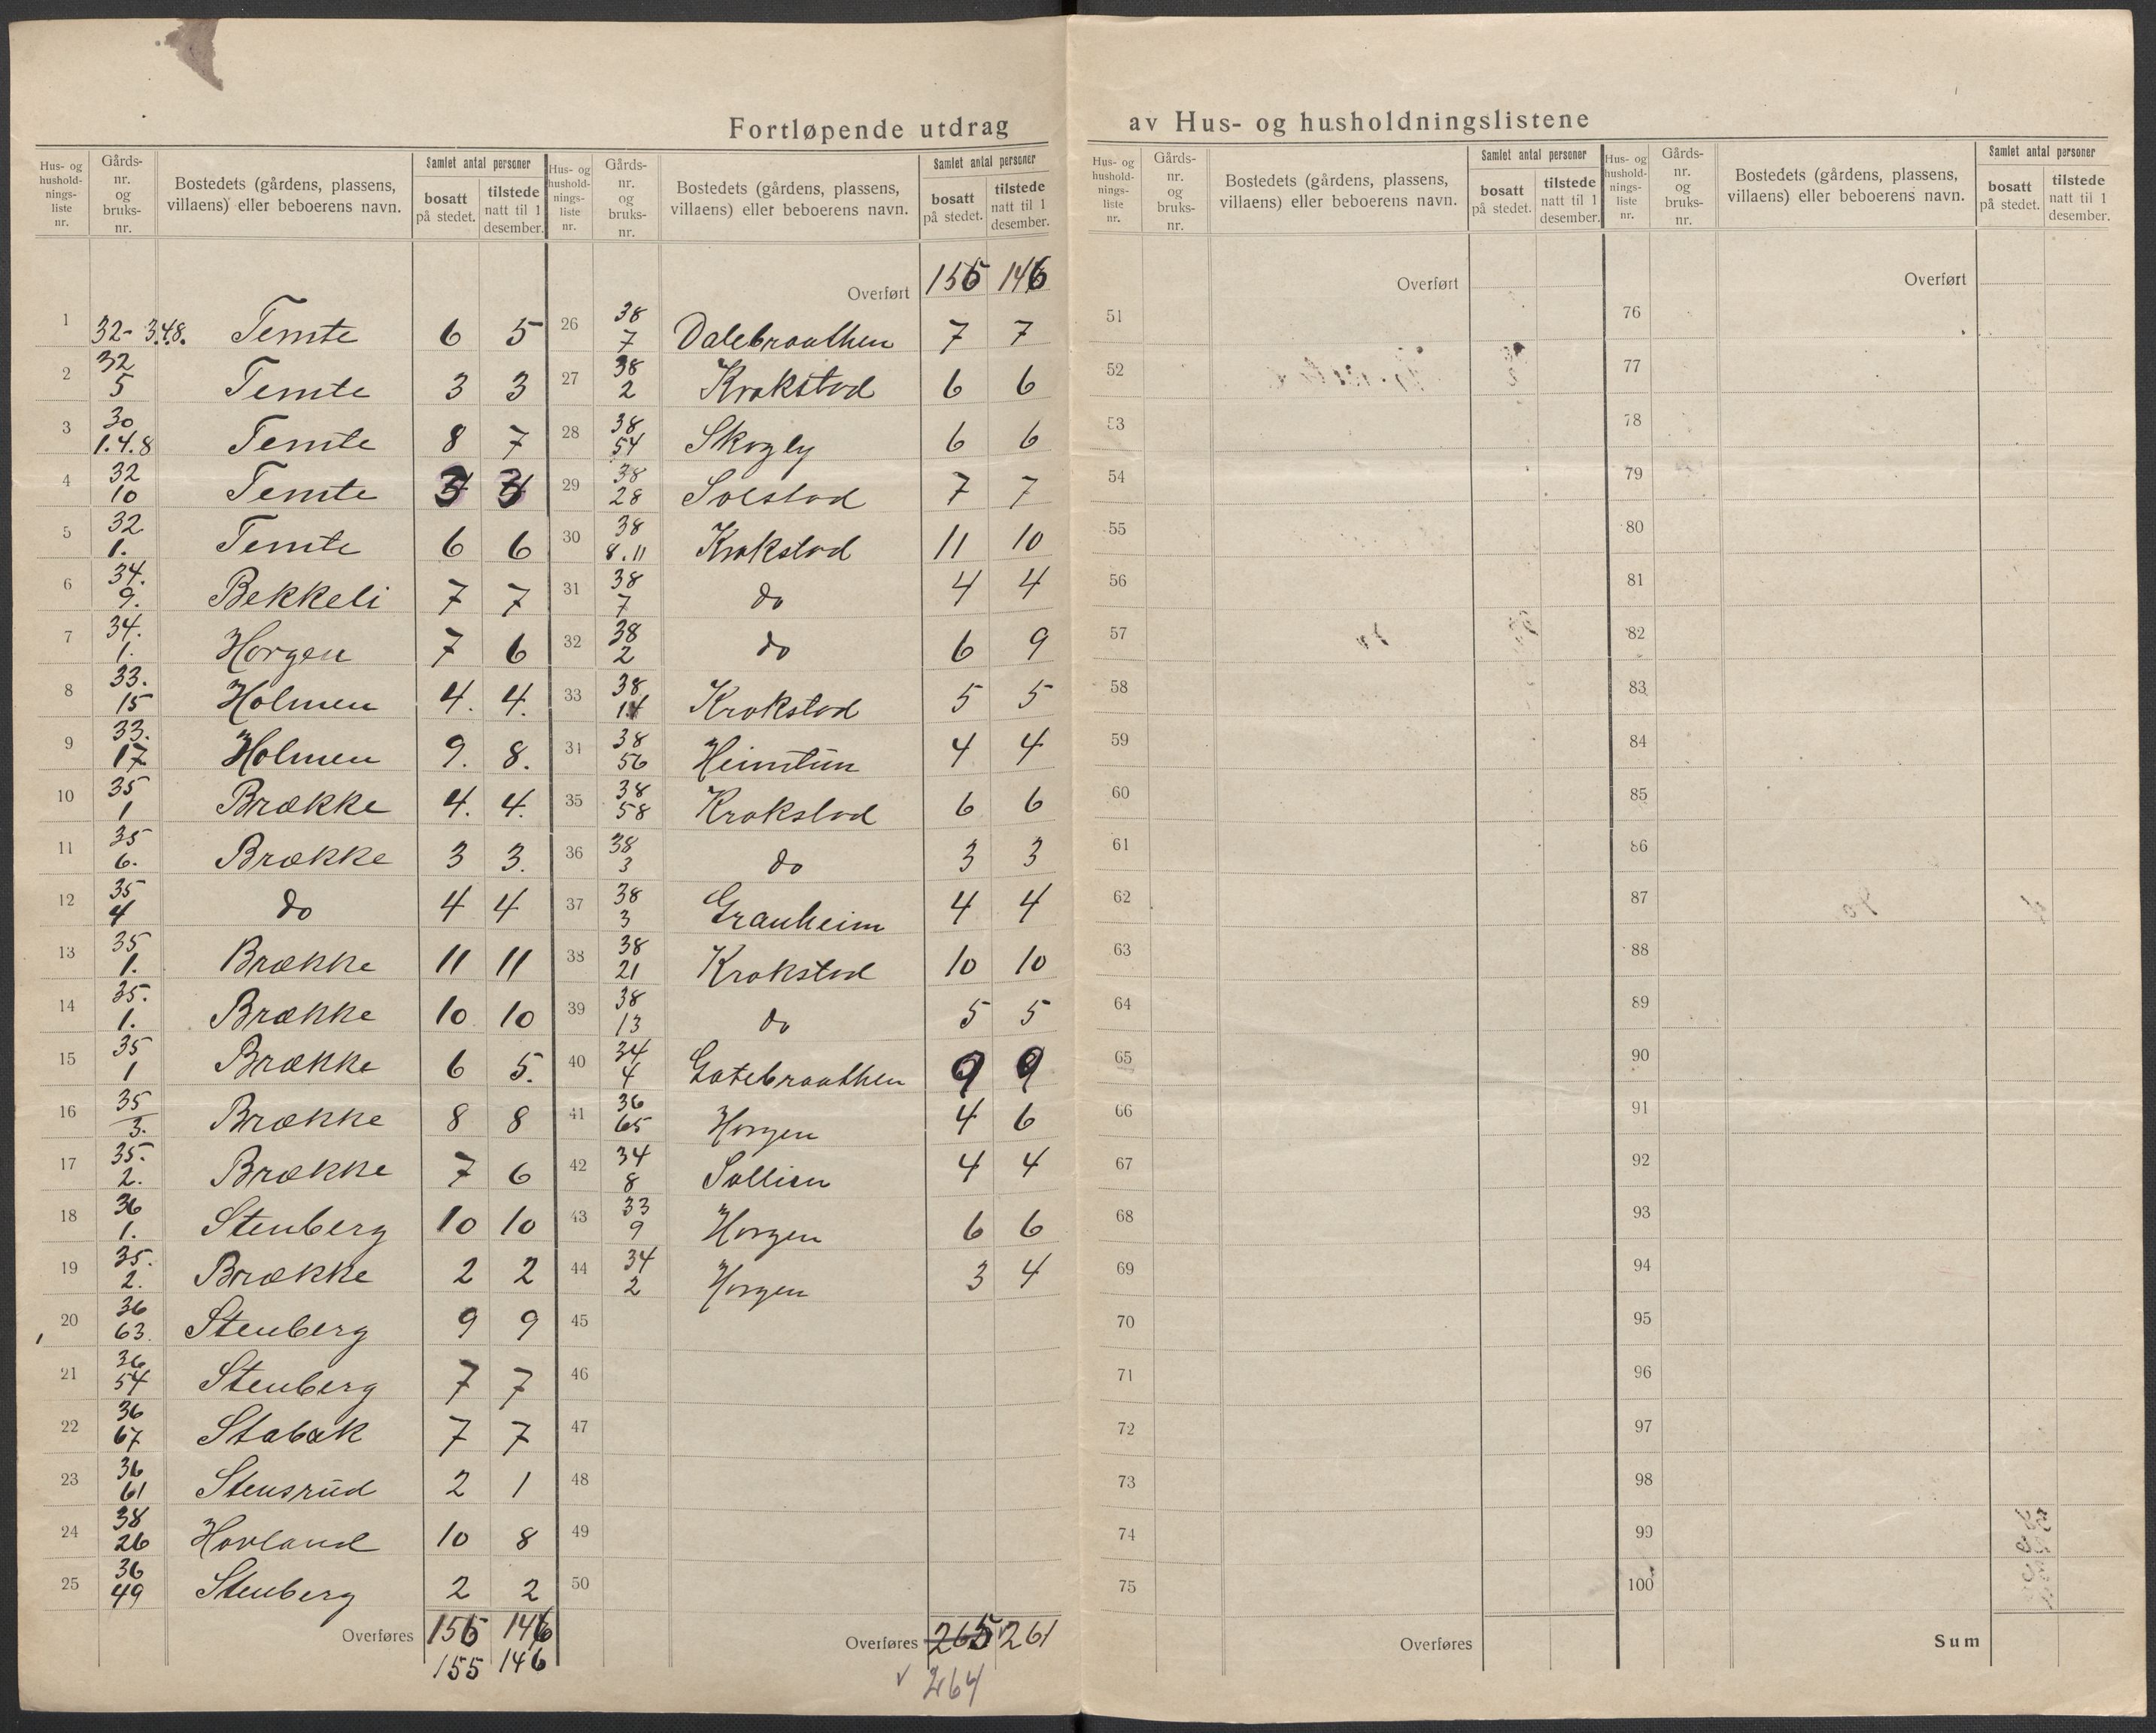 Fortløpende utdrag av Hus- og husholdningslistene
Hus- og hushold-nings-liste nr. | Gårds-nr. og bruks-nr. | Bostedets (gårdens, plassens, villaens) eller beboerens navn. | Samlet antal personer | bosatt på stedet. | tilstede natt til 1 desember.
1 32-3.4.8. Temte 6 5
2 32 5 Temte 3 3
3 30 1.4.8 Temte 8 7
4 32 10 Temte 3 3
5 32 1. Temte 6 6
6 34. 9. Bekkeli 7 7
7 34. 1. Horgen 7 6
8 33. 15 Holmen 4. 4.
9 33. 17 Holmen 9. 8.
10 35 1 Brække 4. 4.
11 35 6. Brække 3 3.
12 35 4 do 4 4
13 35 1. Brække 11 11
14 35. 1. Brække 10 10
15 35 1 Brække 6 5.
16 35 3. Brække 8 8
17 35. 2. Brække 7 6
18 36 1. Stenberg 10 10
19 35. 2. Brække 2 2
20 36 63. Stenberg 9 9
21 36 54 Stenberg 7 7
22 36 67 Stabæk 7 7
23 36 61 Stensrud 2 1
24 38 26 Hovland 10 8
25 36 49 Stenberg 2 2
Overføres 155 146
155 146
Hus- og hushold-nings-liste nr. | Gårds-nr. og bruks-nr. | Bostedets (gårdens, plassens, villaens) eller beboerens navn. | Samlet antal personer | bosatt på stedet. | tilstede natt til 1 desember.
Overført 155 146
26 38 7 Dalebraathen 7 7
27 38 2 Krokstad 6 6
28 38 54 Skogly 6 6
29 38 28 Solstad 7 7
30 38 8.11 Krokstad 11 10
31 38 7 do 4 4
32 38 2 do 6 9
33 38 14 Krokstad 5 5
34 38 56 Heimtun 4 4
35 38 58 Krokstad 6 6
36 38 3 do 3 3
37 38 3 Granheim 4 4
38 38 21 Krokstad 10 10
39 38 13 do 5 5
40 34 4 Gatebraathen 9 9
41 36 65 Horgen 4 6
42 34 8 Sollien 4 4
43 33 9 Horgen 6 6
44 34 2 Horgen 3 4
45
46
47
48
49
50
Overføres 265 261
264
Hus- og hushold-nings-liste nr. | Gårds-nr. og bruks-nr. | Bostedets (gårdens, plassens, villaens) eller beboerens navn. | Samlet antal personer | bosatt på stedet. | tilstede natt til 1 desember.
Overført
51
52
53
54
55
56
57
58
59
60
61
62
63
64
65
66
67
68
69
70
71
72
73
74
75
Overføres
Hus- og hushold-nings-liste nr. | Gårds-nr. og bruks-nr. | Bostedets (gårdens, plassens, villaens) eller beboerens navn. | Samlet antal personer | bosatt på stedet. | tilstede natt til 1 desember.
Overført
76
77
78
79
80
81
82
83
84
85
86
87
88
89
90
91
92
93
94
95
96
97
98
99
100
Sum